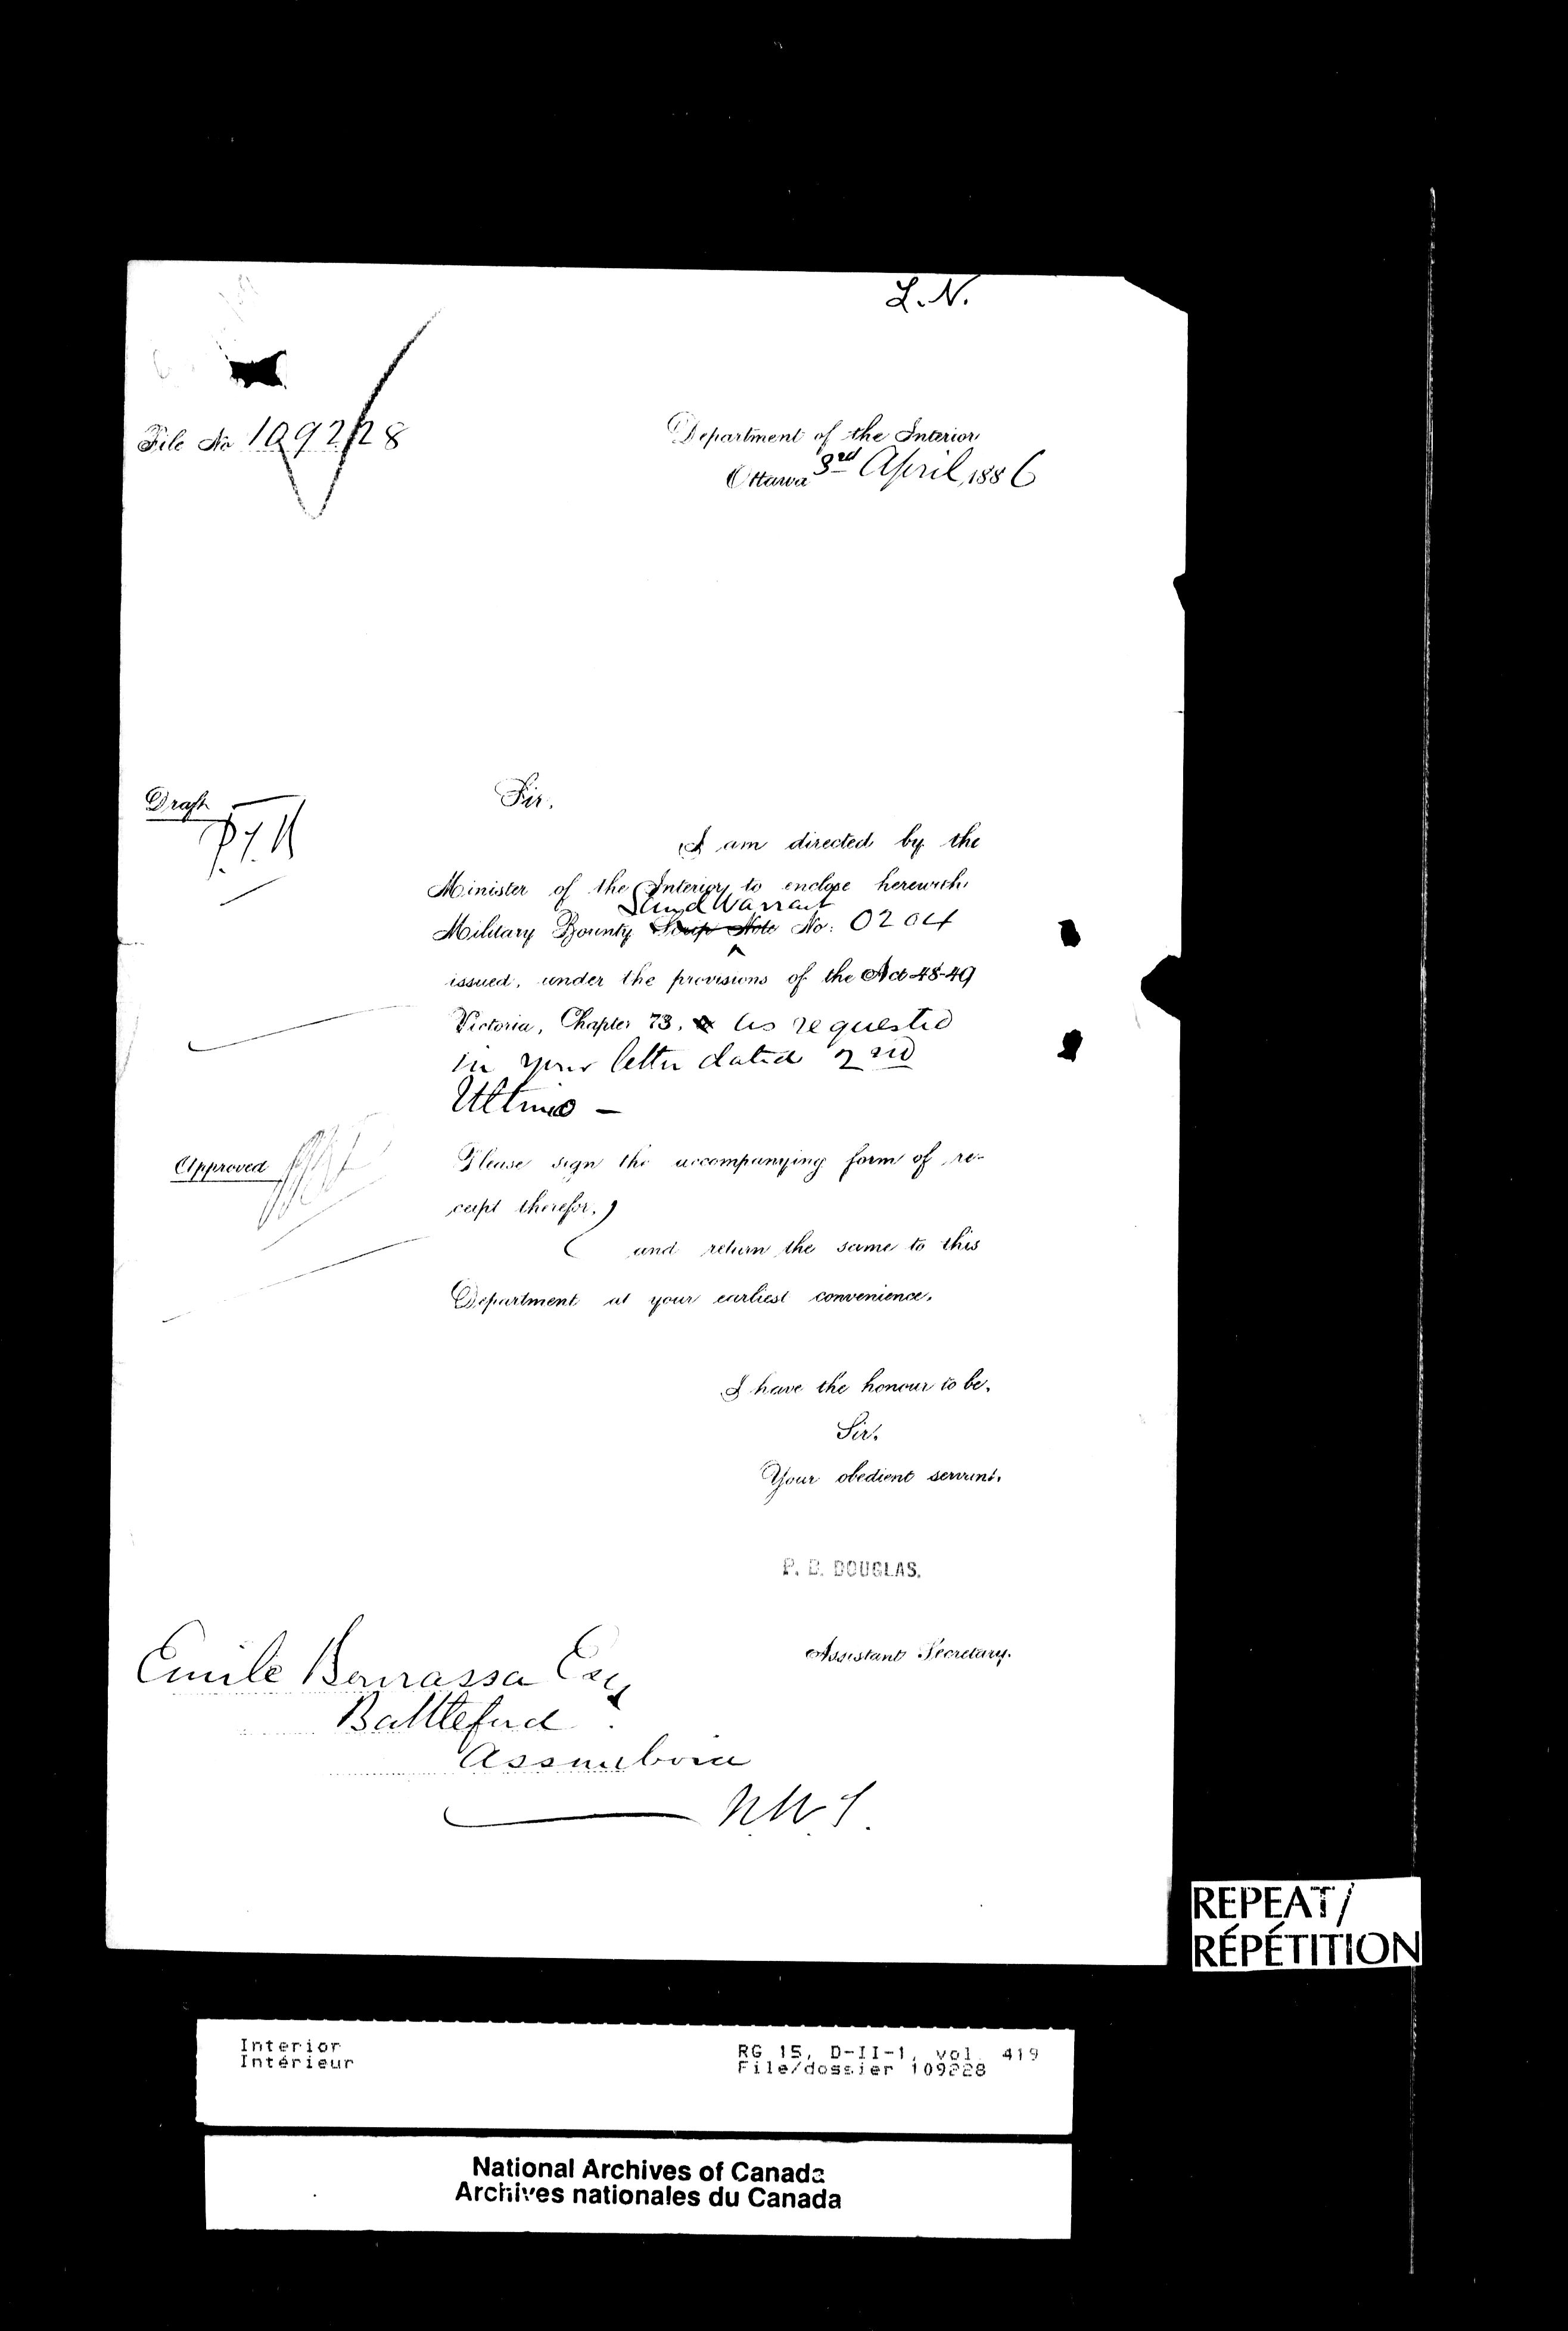 L. N.
File No 109228
Department of the Interior
Ottawa 3rd April, 1886
Draft
Sir,
I am directed by the
Minister of the Interior, to enclose herewith
Land Warrant
Military Bounty Scrip Note No: 0204
issued, under the provisions of the Act 48-49
Victoria, Chapter 73. as requested
in your letter dated 2nd
Ultimo —
Approved
Please sign the accompanying form of re-
ceipt therefor,
and return the same to this
Department at your earliest convenience.
I have the honour to be,
Sir,
Your obedient servant,
P. B. DOUGLAS.
Assistant Secretary.
Emile Bourassa Esq
Battleford
Assiniboia
N.W.T.
REPEAT/
RÉPÉTITION
Interior
Intérieur
RG 15, D-II-1, vol. 419
File/dossier 109228
National Archives of Canada
Archives nationales du Canada